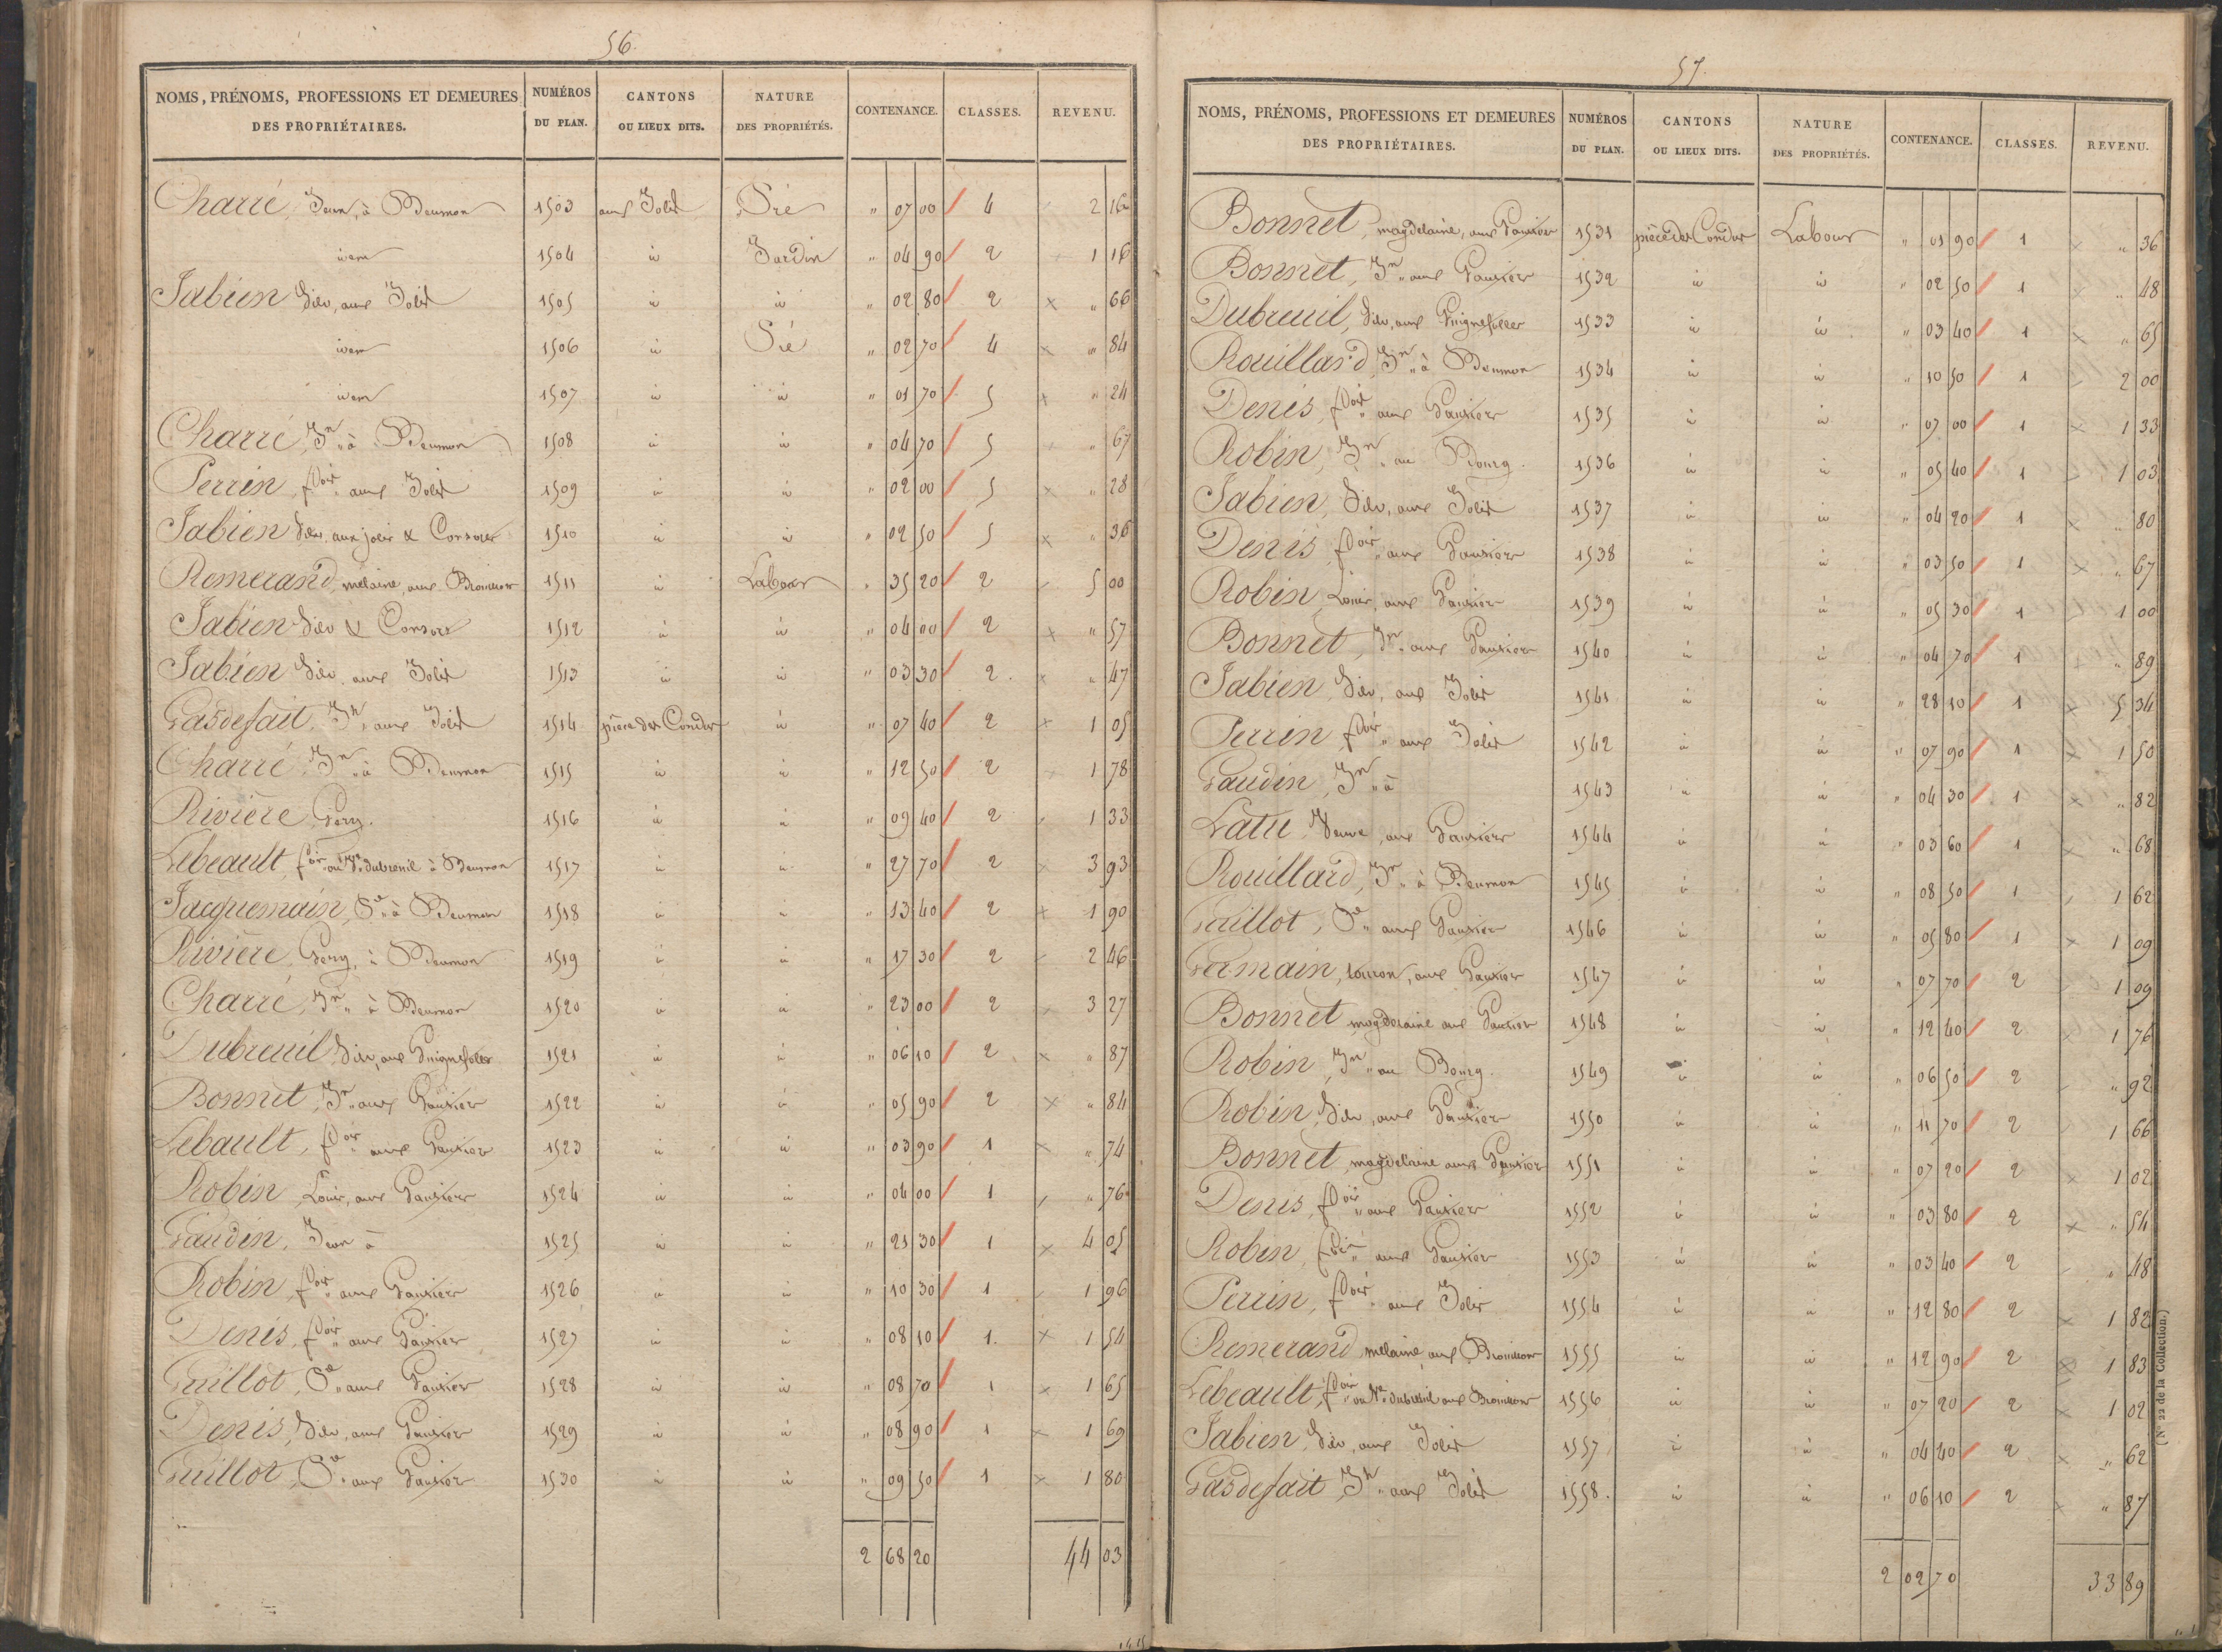 56.
NOMS, PRÉNOMS, PROFESSIONS ET DEMEURES DES PROPRIÉTAIRES. NUMÉROS DU PLAN. CANTONS OU LIEUX DITS. NATURE DES PROPRIÉTÉS. CONTENANCE. CLASSES. REVENU.
Charré, Jean, à Beumon 1503 aux Jolis Pré " 07 00 4 2 16
idem 1504 id Jardin " 04 90 2 1 16
Jabien Silv, aux Jolis 1505 id id " 02 80 2 " 66
idem 1506 id Pré " 02 70 4 " 84
idem 1507 id id " 01 70 5 " 24
Charré, Jn à Beumon 1508 id id " 04 70 5 " 67
Perrin, fcois aux Jolis 1509 id id " 02 00 5 " 28
Jabien Silv, aux jolis & Consors 1510 id id " 02 50 5 " 36
Remerand, melaine, aux 1511 id Labour " 35 20 2 5 00
Jabien Silv & Consors 1512 id id " 04 00 2 " 57
Jabien Silv, aux Jolis 1513 id id " 03 30 2 " 47
Gasdefait, Jh aux Jolis 1514 pièce des id " 07 40 2 1 05
Charré, Jn à Beumon 1515 id id " 12 50 2 1 78
Rivière, Gery. 1516 id id " 09 40 2 1 33
Lebeault, fcois ou Ve dubreuil à Beumon 1517 id id " 27 70 2 3 93
Jacquemain, Pe à Beumon 1518 id id " 13 40 2 1 90
Rivière, Gery, à Beumon 1519 id id " 17 30 2 2 46
Charré, Jn à Beumon 1520 id id " 23 00 2 3 27
Dubreuil Silv, aux 1521 id id " 06 10 2 " 87
Bonnet, Jn aux Gautier 1522 id id " 05 90 2 " 84
Lebault, fcois aux Gautier 1523 id id " 03 90 1 " 74
Robin, Louis, aux Gautier 1524 id id " 04 00 1 " 76
Gaudin, Jean à 1525 id id " 21 30 1 4 05
Robin, fcois aux Gautier 1526 id id " 10 30 1 1 96
Denis, fcois aux Gautier 1527 id id " 08 10 1 1 54
Guillot, Pe aux Gautier 1528 id id " 08 70 1 1 65
Denis, Silv, aux Gautier 1529 id id " 08 90 1 1 69
Guillot, Pe aux Gautier 1530 id id " 09 50 1 1 80
2 68 20 44 03
57.
NOMS, PRÉNOMS, PROFESSIONS ET DEMEURES DES PROPRIÉTAIRES. NUMÉROS DU PLAN. CANTONS OU LIEUX DITS. NATURE DES PROPRIÉTÉS. CONTENANCE. CLASSES. REVENU.
Bonnet, magdelaine, aux Gautier 1531 pièce des Labour " 01 90 1 " 36
Bonnet, Jn aux Gautier 1532 id id " 02 50 1 " 48
Dubreuil, Silv, aux 1533 id id " 03 40 1 " 65
Rouillard, Jn à Beumon 1534 id id " 10 50 1 2 00
Denis, fcois aux Gautier 1535 id id " 07 00 1 1 33
Robin, Jn au Bourg. 1536 id id " 05 40 1 1 03
Jabien, Silv, aux Jolis 1537 id id " 04 20 1 " 80
Denis, fcois aux Gautier 1538 id id " 03 50 1 " 67
Robin, Louis, aux Gautier 1539 id id " 05 30 1 1 00
Bonnet, Jn aux Gautier 1540 id id " 04 70 1 " 89
Jabien, Silv, aux Jolis 1541 id id " 28 10 1 5 34
Perrin, fcois aux Jolis 1542 id id " 07 90 1 1 50
Gaudin, Jn à 1543 id id " 04 30 1 " 82
Veuve, aux Gautier 1544 id id " 03 60 1 " 68
Rouillard, Jn à Beumon 1545 id id " 08 50 1 1 62
Guillot, Pe aux Gautier 1546 id id " 05 80 1 1 09
Germain, aux Gautier 1547 id id " 07 70 2 1 09
Bonnet, magdelaine aux Gautier 1548 id id " 12 40 2 1 76
Robin, Jn au Bourg. 1549 id id " 06 50 2 " 92
Robin, Silv, aux Gautier 1550 id id " 11 70 2 1 66
Bonnet, magdelaine aux Gautier 1551 id id " 07 20 2 1 02
Denis, fcois aux Gautier 1552 id id " 03 80 2 " 54
Robin, fcois aux Gautier 1553 id id " 03 40 2 " 48
Perrin, fcois aux Jolis 1554 id id " 12 80 2 1 82
Remerand, melaine aux 1555 id id " 12 90 2 1 83
Lebeault, fcois ou Ve dubreuil aux 1556 id id " 07 20 2 1 02
Jabien, Silv, aux Jolis 1557 id id " 04 40 2 " 62
Gasdefait, Jh aux Jolis 1558. id id " 06 10 2 " 87
2 02 70 33 89
(N° 22 de la Collection.)